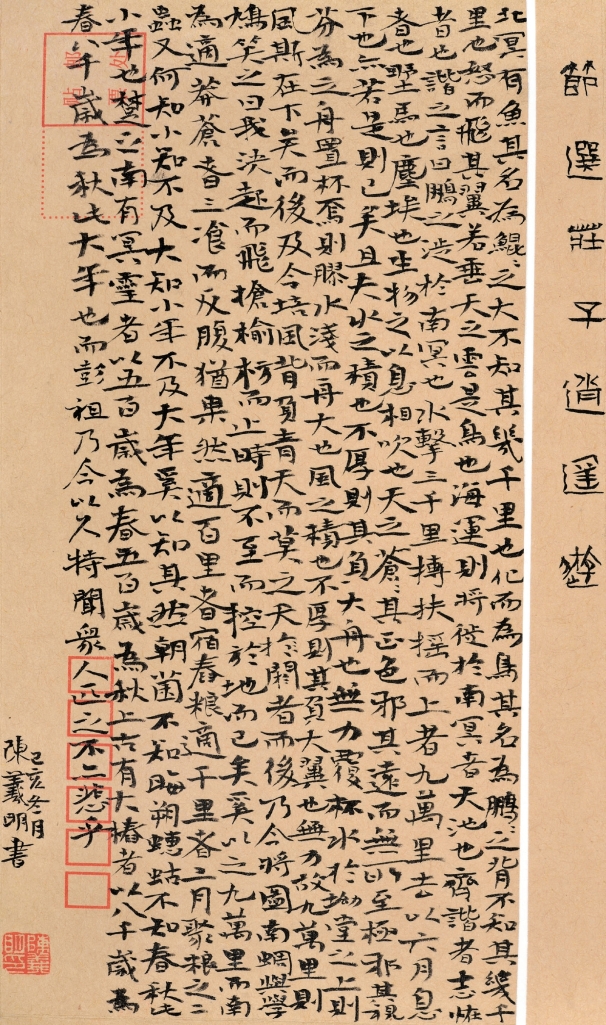 節選莊子逍遥遊
北冥有魚其名為鯤鯤之大不知其幾千里也化而為鳥其名為鵬鵬之背不知其幾千
里也怒而飛其翼若垂天之雲是鳥也海運則將徙於南冥南冥者天池也齊諧者志怪
者也諧之言曰鵬之徙於南冥也水擊三千里摶扶搖而上者九萬里去以六月息
者也野馬也塵埃也生物之以息相吹也天之蒼蒼其正色邪其遠而無所至極邪其視
下也亦若是則已矣且夫水之積也不厚則其負大舟也無力覆杯水於坳堂之上則
芥為之舟置杯焉則膠水淺而舟大也風之積也不厚則其負大翼也無力故九萬里則
風斯在下矣而後乃今培風背負青天而莫之夭於閼者而後乃今將圖南蜩與學
鳩笑之曰我決起而飛搶榆枋而止時則不至而控於地而已矣奚以之九萬里而南
為適莽蒼者三飡而反腹猶果然適百里者宿舂粮適千里者三月聚粮之二
蟲又何知小知不及大知小年不及大年奚以知其然朝菌不知晦朔蟪蛄不知春秋此
小年也楚之南有冥靈者以五百歲為春五百歲為秋上古有大椿者以八千歲為
春八千歲為秋此大年也而彭祖乃今以久特聞眾人匹之不亦悲乎
己亥冬月
陳義明書